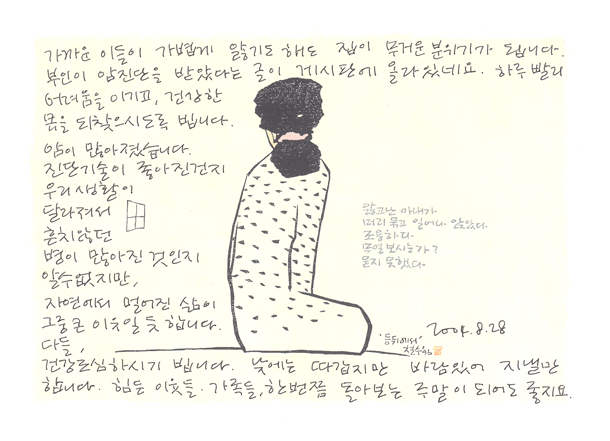 가까운 이들이 가볍게 앓기도 해도 집이 무거운 분위기가 됩니다.
부인이 암진단을 받았다는 글이 게시판에 올라 있네요. 하루 빨리
어려움을 이기고, 건강한
몸을 되찾으시도록 빕니다.
암이 많아졌습니다.
진단기술이 좋아진건지
우리 생활이
달라져서
흔치않던
병이 많아진 것인지
알수없지만,
자연에서 멀어진 삶이
그중 큰 이웃일 듯 합니다.
다들,
건강조심하시기 빕니다. 낮에는 따갑지만 바람있어 지낼만
합니다. 힘든 이웃들. 가족들, 한번쯤 돌아보는 주말이 되어도 좋지요.
앓고난 아내가
머리 묶고 일어나 앉았다.
조용하다.
무얼 보시는가?
묻지 못했다.
'등뒤에서'
2004.8.28